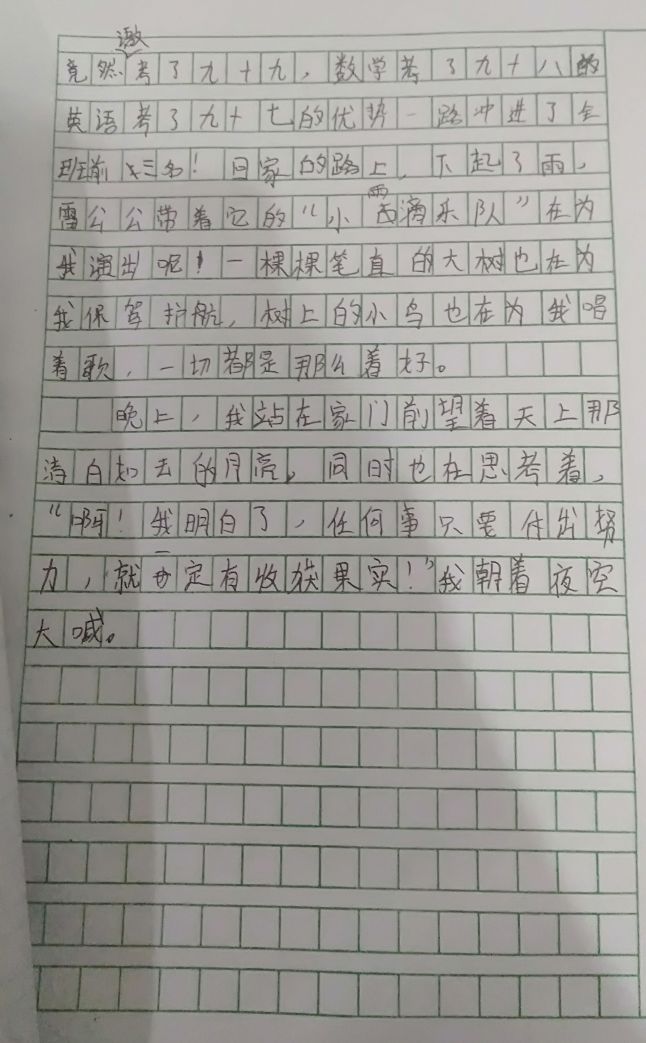 激
竟然考了九十九，数学考了九十八的
英语考了九十七的优势一路冲进了全
班前三名！回家的路上，下起了雨，
雷公公带着它的“小雨滴乐队”在为
我演出呢！一棵棵笔直的大树也在为
我保驾护航，树上的小鸟也在为我唱
着歌，一切都是那么着好。
晚上，我站在家门前望着天上那
清白如去的月亮，同时也在思考着，
“啊！我明白了，任何事只要付出努
力，就一定有收获果实！”我朝着夜空
大喊。